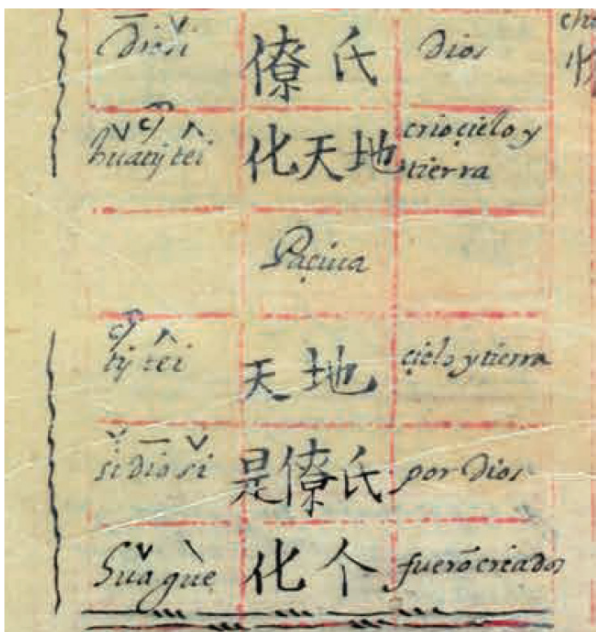 diosi 僚氏 Dios
huatỹ tei 化天地 crio çielo y
tierra
Paçiua
tỹ tei 天地 çielo y tierra
si dio si 是僚氏 por Dios
huâ guè 化个 fuerõ criados